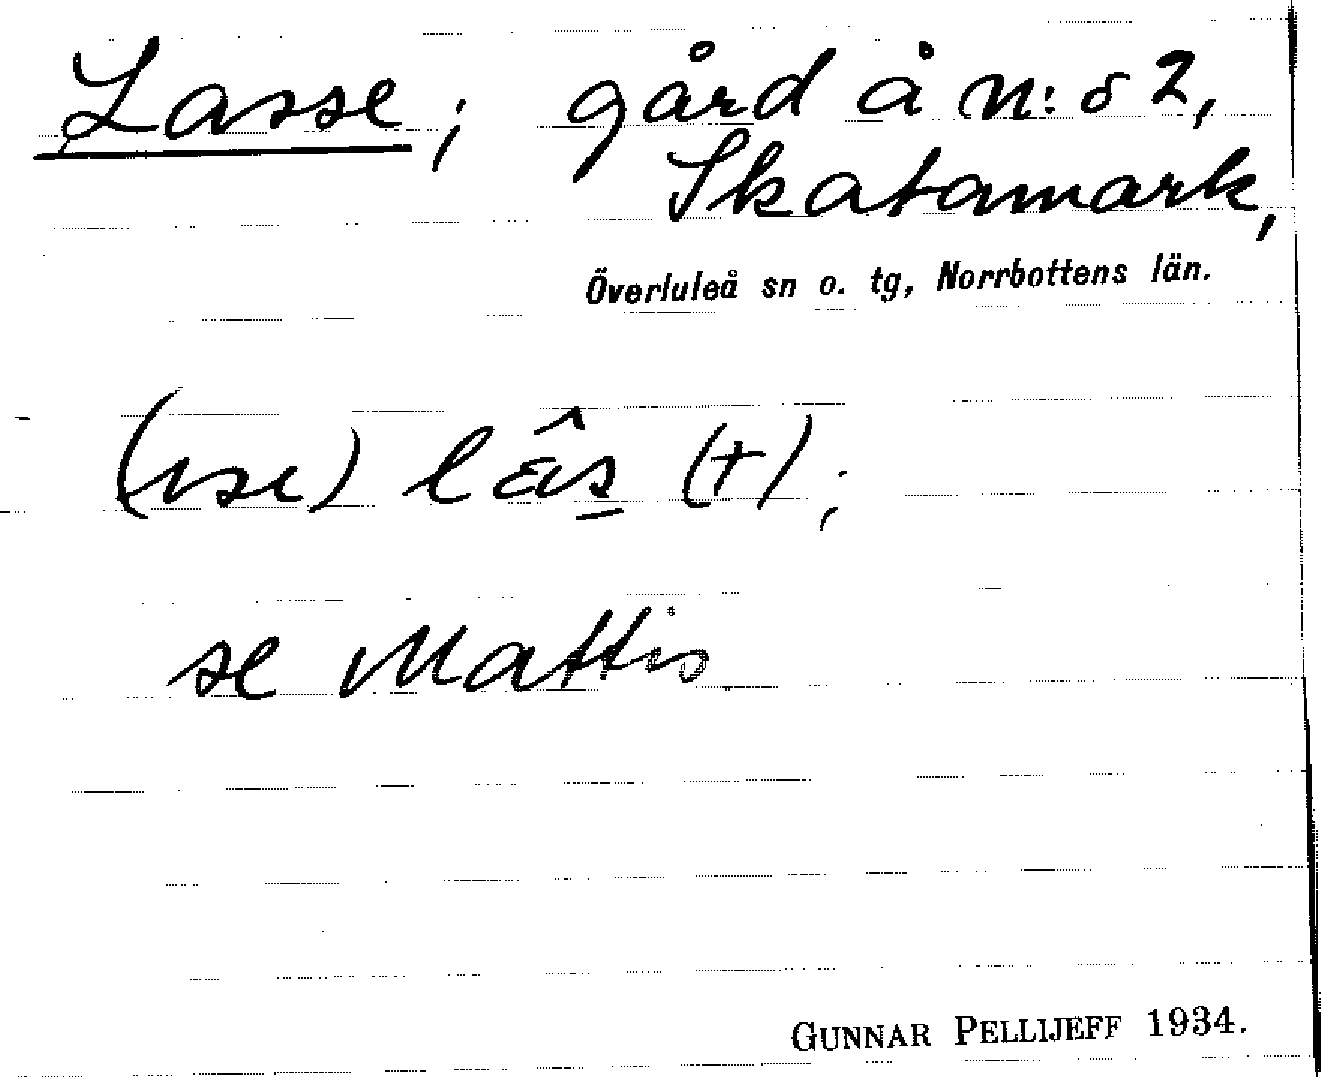 Lasse; gård å n:o 2,
Skatamark,
Överluleå sn o. tg, Norrbottens län.
(use) (+);
se Mattis
GUNNAR PELLIJEFF 1934.